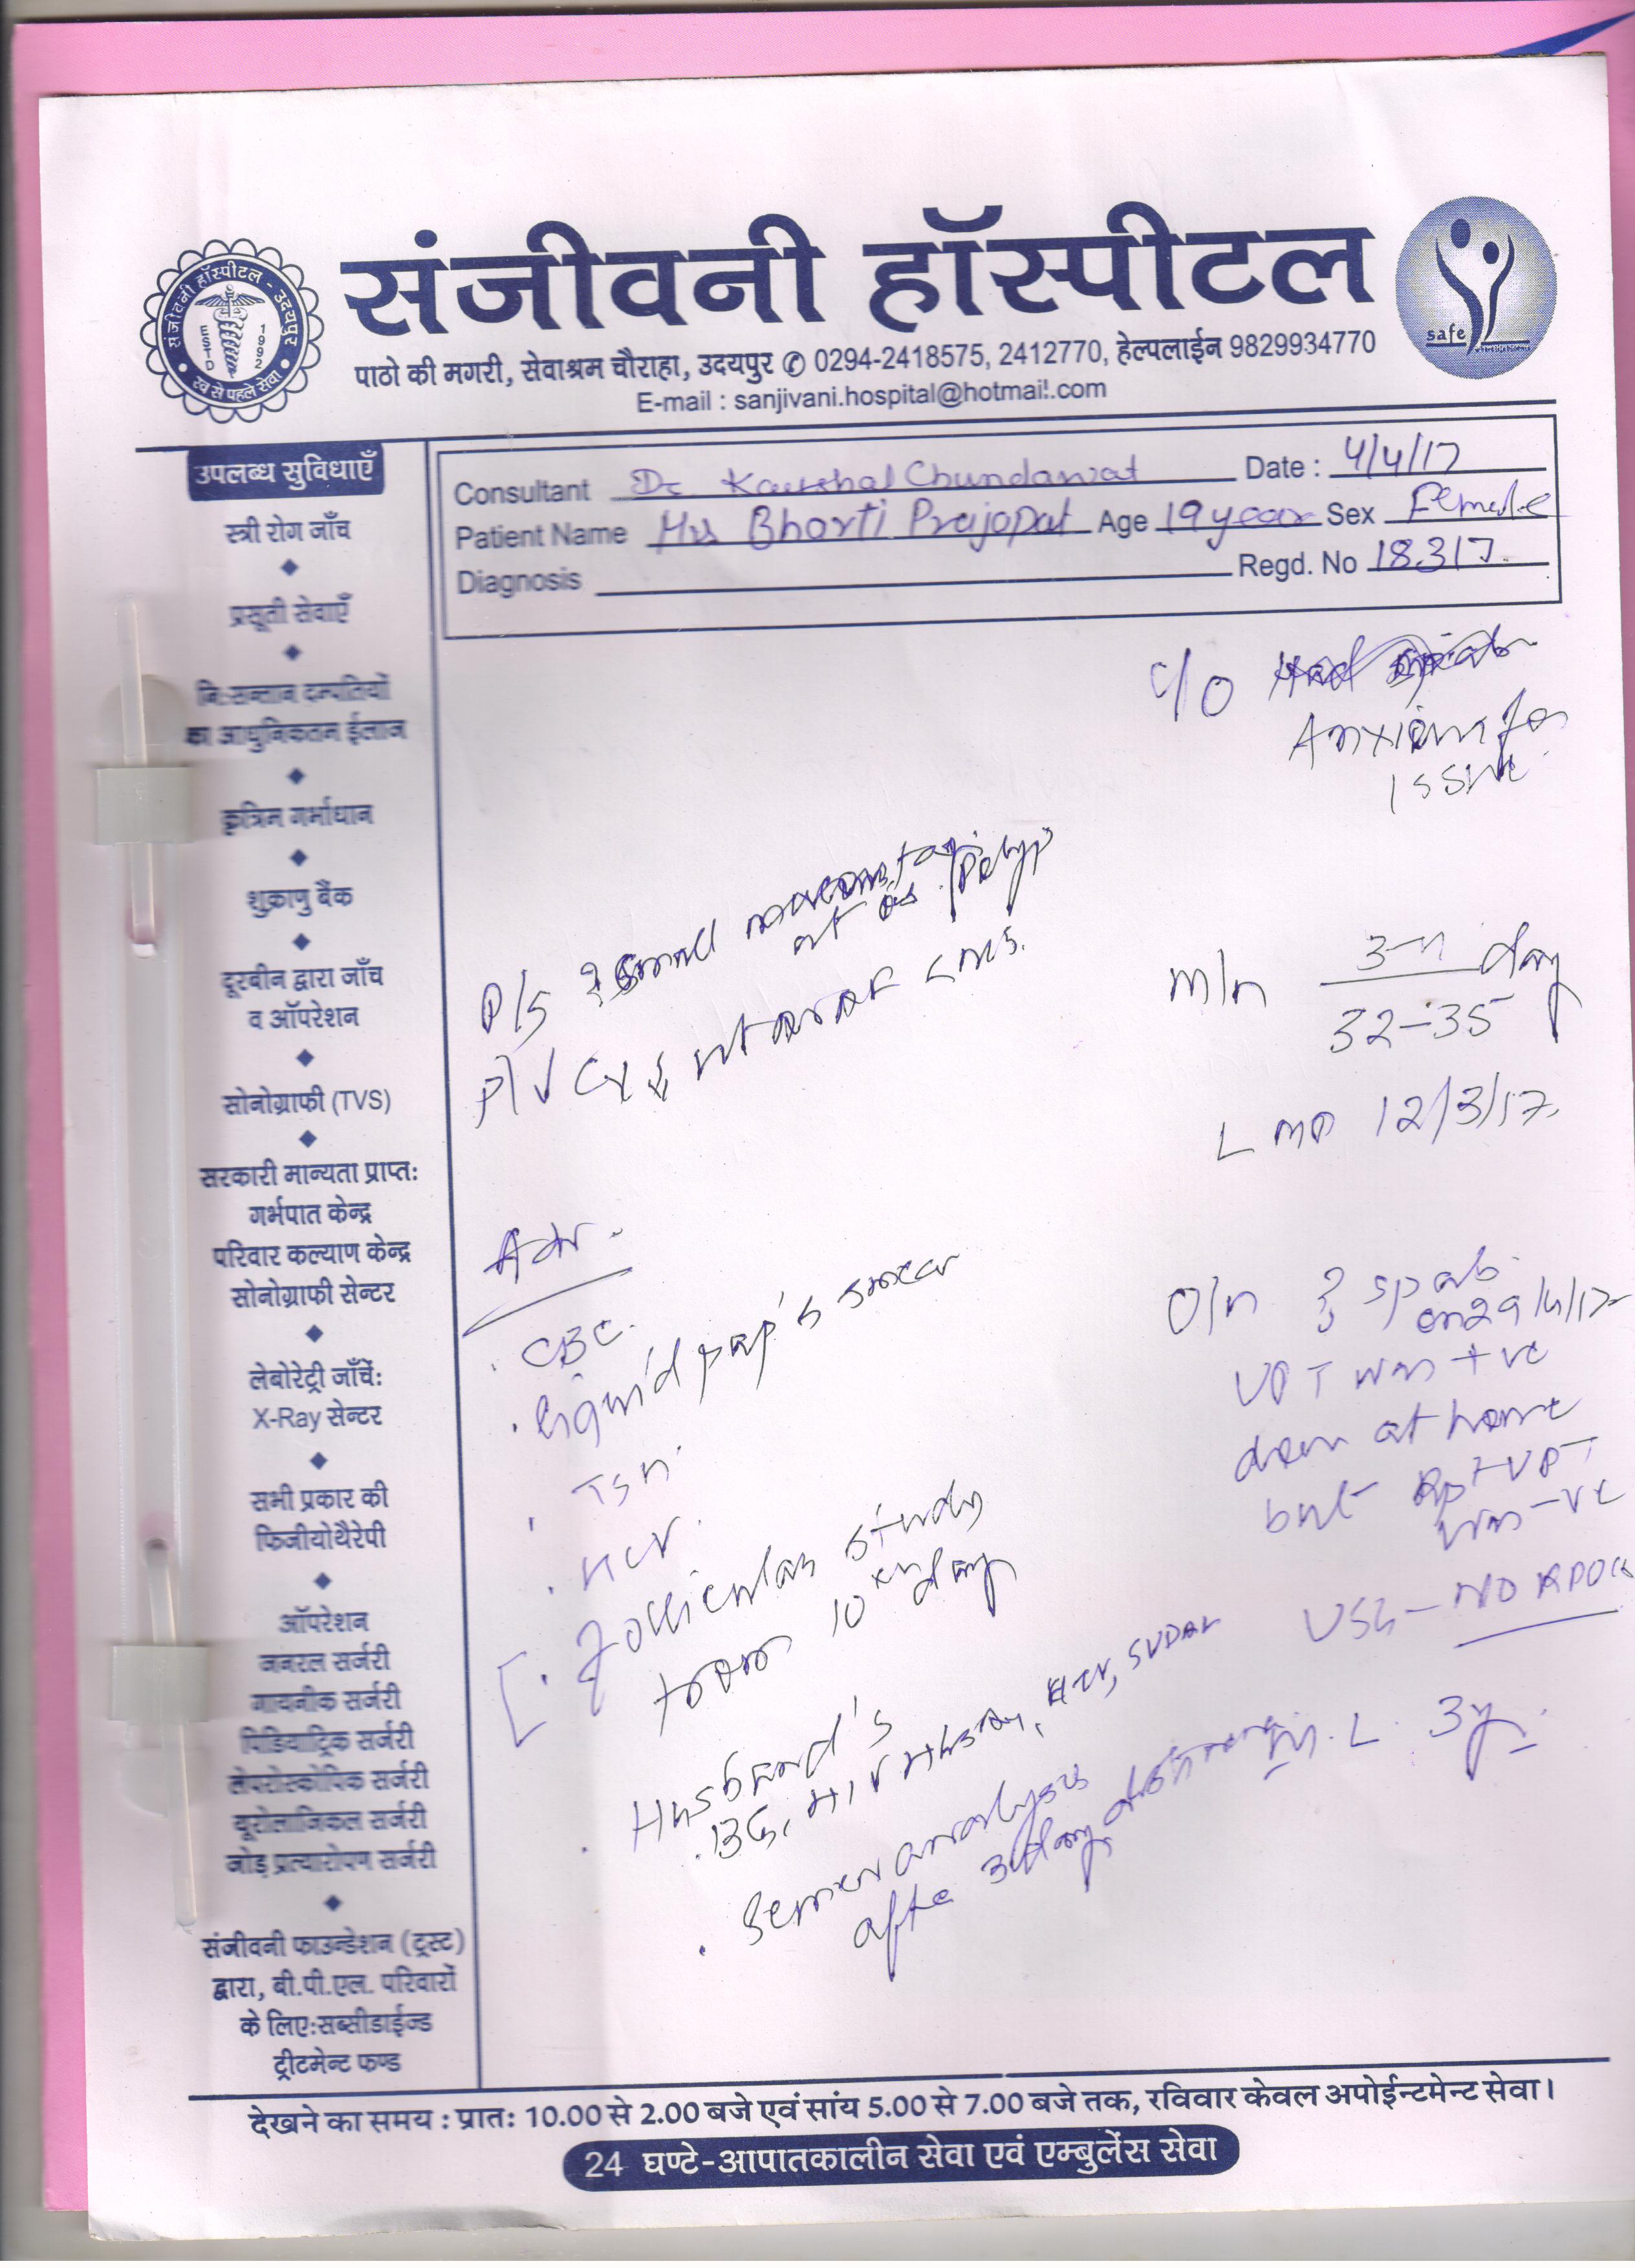 संजीवनी हॉस्पीटल - उदयपुर
ESTD 1992
संजीवनी हॉस्पीटल
safe
पाठो की मगरी, सेवाश्रम चौराहा, उदयपुर ✆ 0294-2418575, 2412770, हेल्पलाईन 9829934770
E-mail : sanjivani.hospital@hotmail.com
Consultant Dr Kaushal Chundawat Date : 4/4/17
Patient Name Mrs Bharti Prajapat Age 19 year Sex Female
Diagnosis Regd. No 18317.
उपलब्ध सुविधाएँ
स्त्री रोग जाँच
प्रसूती सेवाएँ
नि:सन्तान दम्पतियों
का आधुनिकतम ईलाज
कृत्रिम गर्भाधान
शुक्राणु बैंक
दूरबीन द्वारा जाँच
व ऑपरेशन
सोनोग्राफी (TVS)
सरकारी मान्यता प्राप्त:
गर्भपात केन्द्र
परिवार कल्याण केन्द्र
सोनोग्राफी सेन्टर
लेबोरेट्री जाँचें:
X-Ray सेन्टर
सभी प्रकार की
फिजीयोथैरेपी
ऑपरेशन
जनरल सर्जरी
गायनीक सर्जरी
पिडियाट्रिक सर्जरी
लेपरोस्कोपिक सर्जरी
यूरोलाजिकल सर्जरी
जोड़ प्रत्यारोपण सर्जरी
संजीवनी फाउन्डेशन (ट्रस्ट)
द्वारा, बी.पी.एल. परिवारों
के लिए:सब्सीडाईन्ड
ट्रीटमेन्ट फण्ड
c/o
Anxious for
issue
P/S ? small
at os /Polyp
P/V Cx
M/h 3-4 day
32-35
LMP 12/3/17.
O/h ? sp ab.
UPT was +ve
done at home
but Rpt UPT
was -ve
USG - NO RPOCs
M.L. 3y.
Adv.
. CBC.
. Liquid pap's smear
. TSH.
. HCV.
[. Follicular study
from 10th day
. Husband's
. BG, HIV, HBsAg, HCV, VDRL
. Semen analysis
after 3 day abstinence
देखने का समय : प्रात: 10.00 से 2.00 बजे एवं सांय 5.00 से 7.00 बजे तक, रविवार केवल अपोईन्टमेन्ट सेवा।
24 घण्टे-आपातकालीन सेवा एवं एम्बुलेंस सेवा